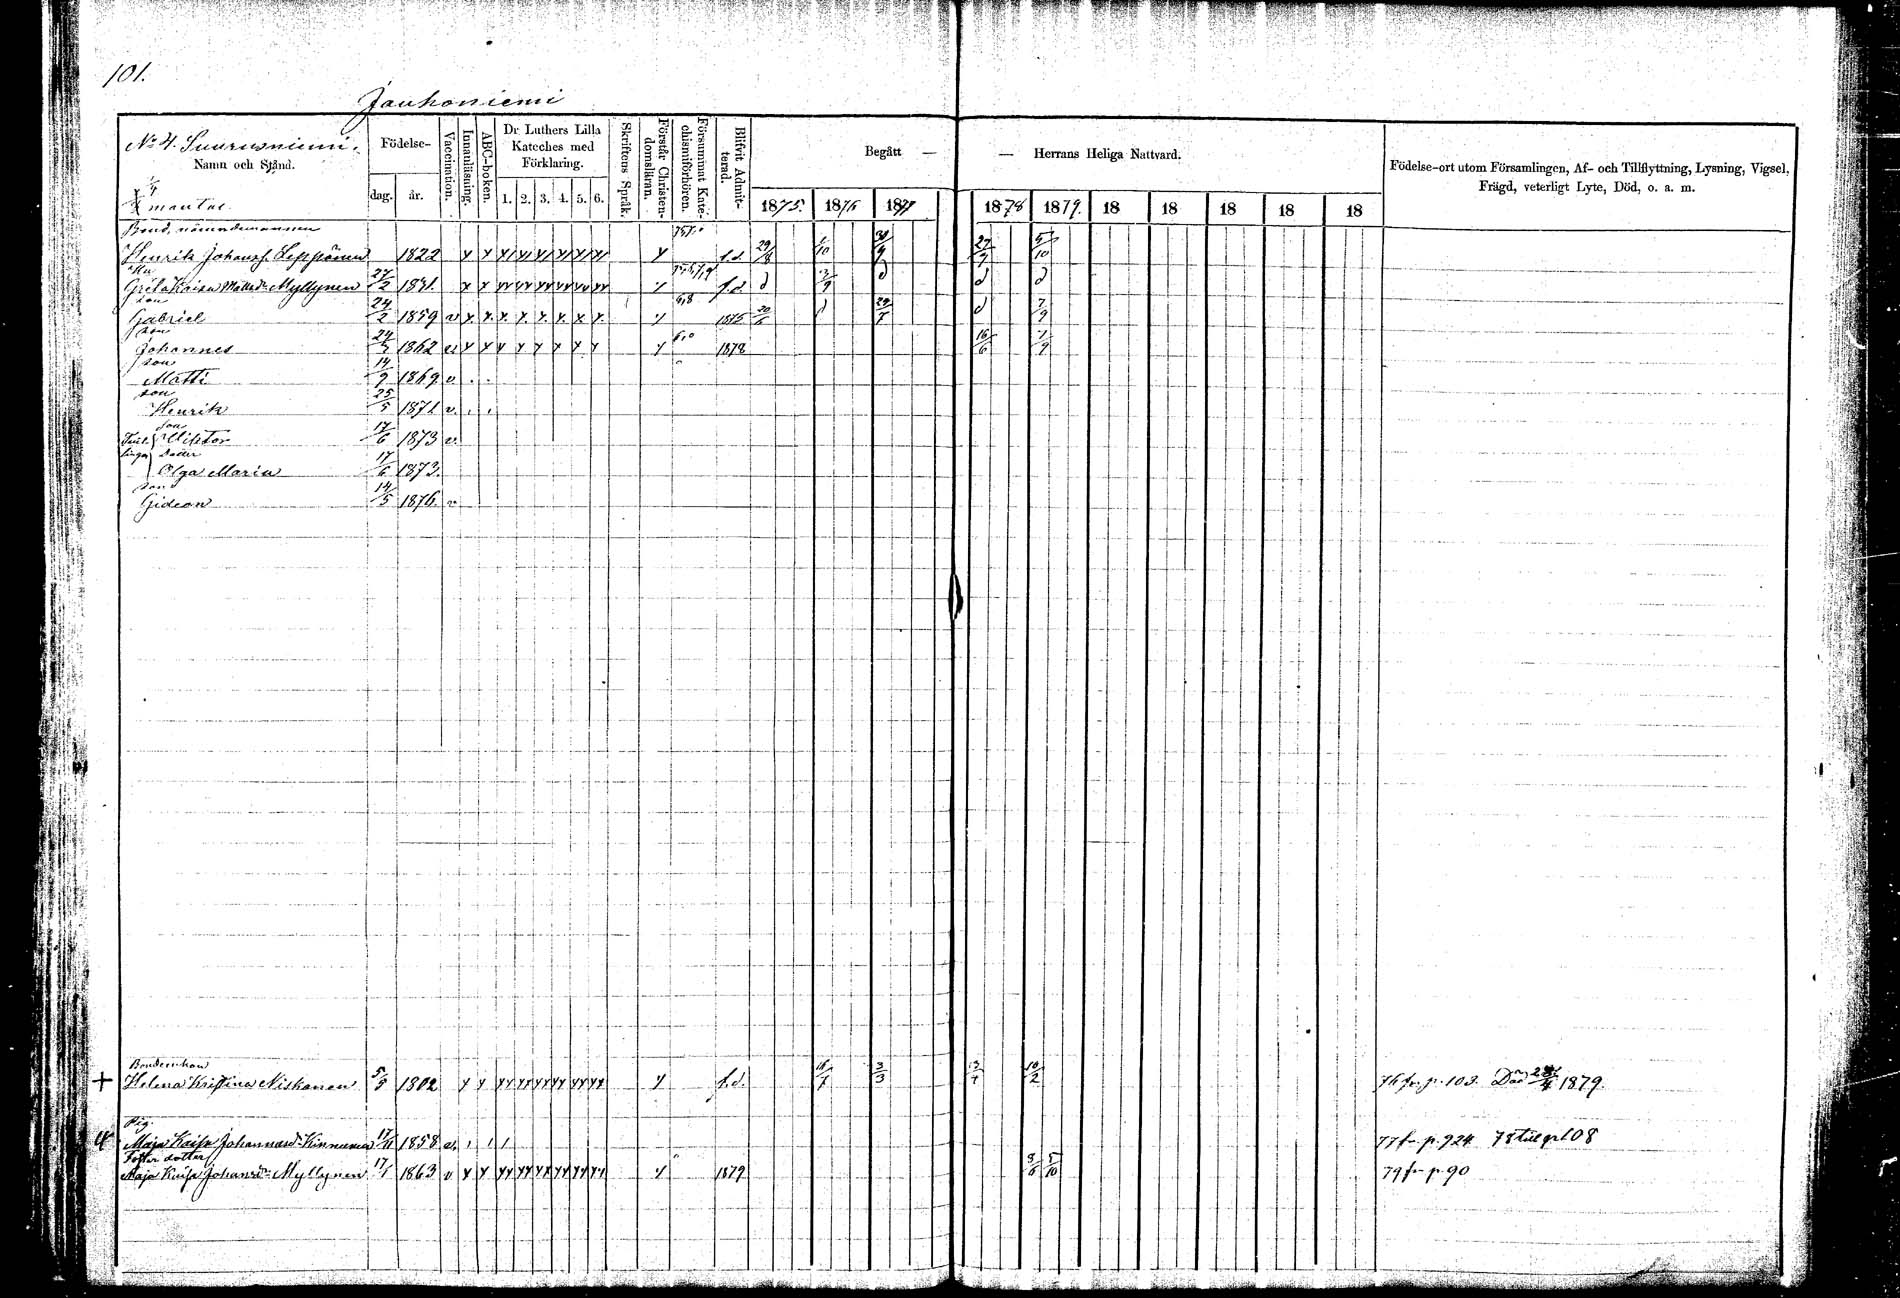 101.
Jauhoniemi
No 4. Suurusniemi.
Namn och Stånd.
mantal
Födelse-
dag. år.
Vaccination.
Innanläsning.
ABC-boken.
Dr Luthers Lilla Kateches med Förklaring.
1. 2. 3. 4. 5. 6.
Skriftens Språk.
Förstår Christendomsläran.
Försummat Katechismiförhören.
Blifvit Admitterad.
Begått — — Herrans Heliga Nattvard.
1875. 1876 1877 1878 1879. 18 18 18 18 18
Födelse-ort utom Församlingen, Af- och Tillflyttning, Lysning, Vigsel, Frägd, veterligt Lyte, Död, o. a. m.
Bond. nämndemannen
Henrik Johanss. Leppänen 1822 f.d. 29/8 1/10 30/9 27/7 5/10
Hu
Greta Kaisa Mattsdr Myllynen 27/2 1831. f.d.
son
Gabriel 24/2 1859 v 6,8 1875 20/6 29/7 7/9
son
Johannes 24/7 1862 v 1878 16/6 7/9
son
Matti 14/9 1869. v.
son
Henrik 25/5 1871 v.
son
Viktor 17/6 1873 v.
Dotter
Olga Maria 17/6 1873.
son
Gideon 14/5 1876. v
Bondeenkan
+ Helena Kristina Niskanen 5/5 1802 f.d. 16/7 3/3 13/7 10/2 76 fr. p. 103. Död 1879.
Pig.
Maja Kaisa Johannesdr Kinnunen 17/11 1858 v. 77 fr p. 924 78 till p 108
Foster dotter
Maja Kaisa Johansdr Myllynen 17/1 1863 v 1879 8/6 5/10 79 fr p 90